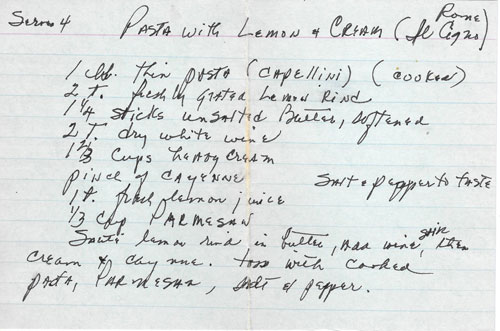 Serves 4
Pasta with Lemon & Cream (Il Cigno) Rome
1 lb. thin pasta (Capellini) (cooked)
2 t. freshly grated Lemon Rind
1 1/4 sticks unsalted Butter, softened
2 T. dry white wine
1 2/3 Cups heavy cream
Pinch of Cayenne
Salt & pepper to taste
1 t. fresh lemon juice
1/3 cup Parmesan
Sauté lemon rind in butter, add wine, then
cream & cayenne. Toss with cooked
pasta, Parmesan, salt & pepper.